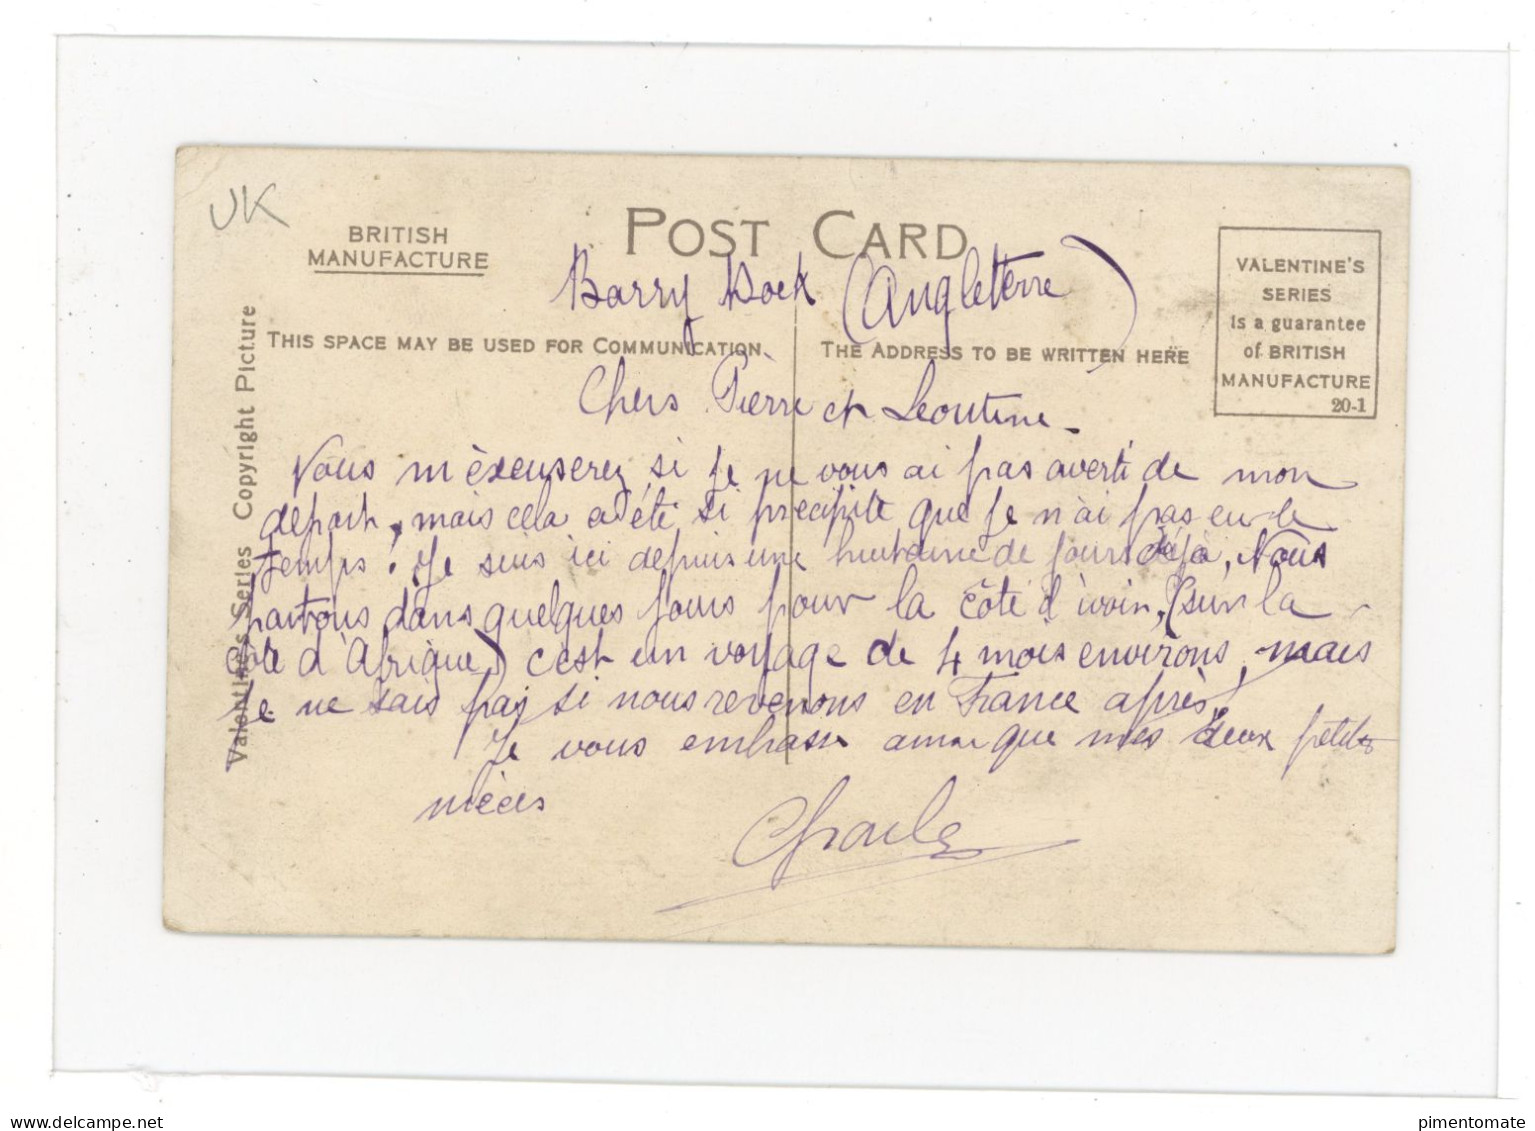 UK
BRITISH
MANUFACTURE
POST CARD
VALENTINE'S
SERIES
is a guarantee
of BRITISH
MANUFACTURE
20-1
Barry Dock (Angleterre)
THIS SPACE MAY BE USED FOR COMMUNICATION.
THE ADDRESS TO BE WRITTEN HERE
Valentine's Series Copyright Picture
Chers Pierre et Leontine.
Vous m'excuserez si je ne vous ai pas averti de mon
depart, mais cela a été si precipité que je n'ai pas eu le
temps! Je suis ici depuis une huitaine de jours déjà, Nous
partons dans quelques jours pour la côte d'ivoir, (sur la
côte d'Afrique) c'est un voyage de 4 mois environs, mais
je ne sais pas si nous revenons en France après.
Je vous embrasse ainsi que mes deux petites
nièces
Charles
pimentomate